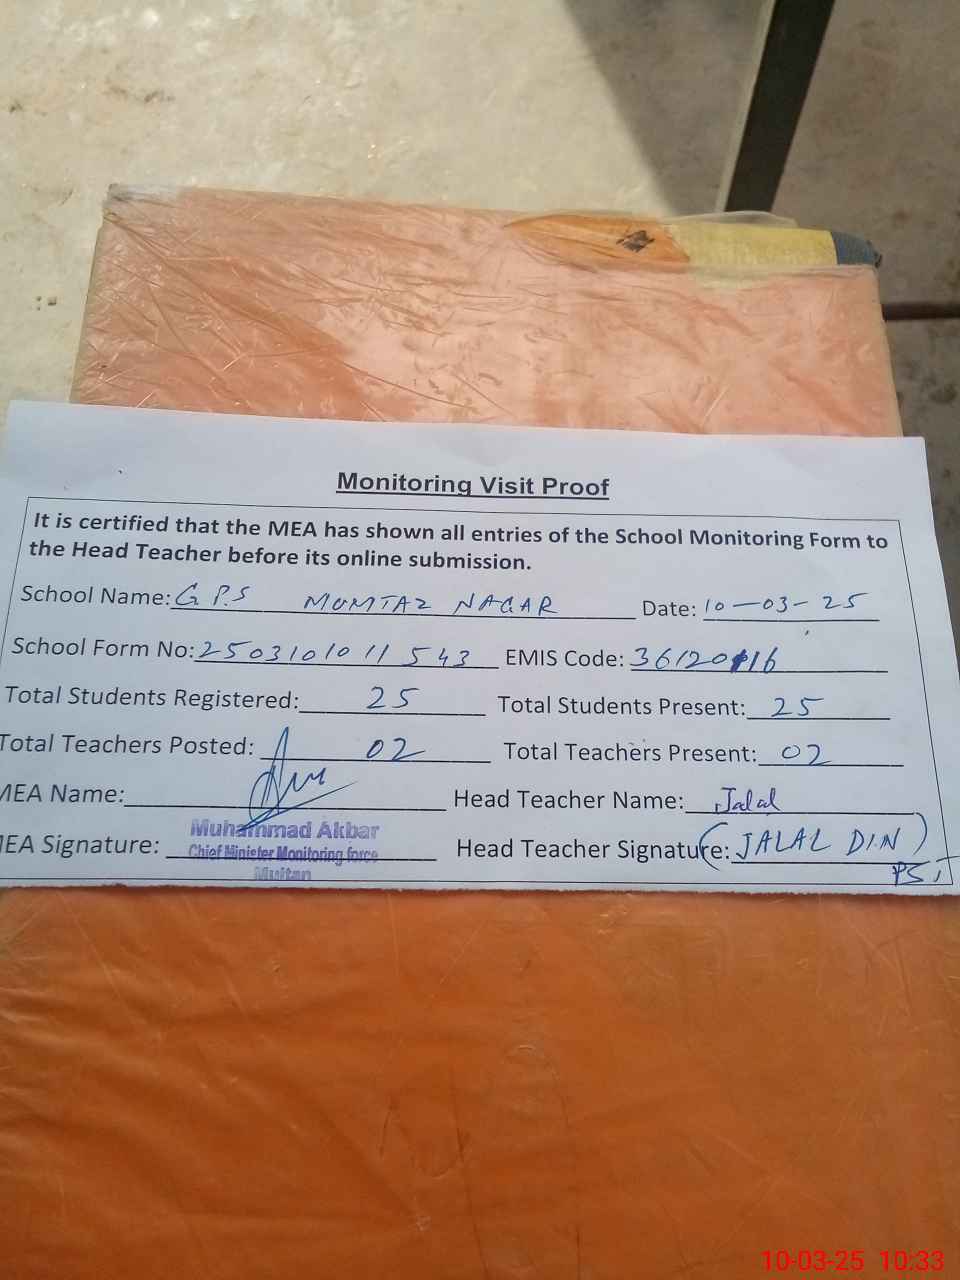 Monitoring Visit Proof
It is certified that the MEA has shown all entries of the School Monitoring Form to
the Head Teacher before its online submission.
School Name: G.P.S MUMTAZ NAGAR Date: 10-03-25
School Form No: 2503101011543 EMIS Code: 36120116
Total Students Registered: 25 Total Students Present: 25
Total Teachers Posted: 02 Total Teachers Present: 02
MEA Name: Head Teacher Name: Jalal
MEA Signature: Muhammad Akbar Head Teacher Signature: (JALAL DIN)
Chief Minister Monitoring force PST
Multan
10-03-25 10:33